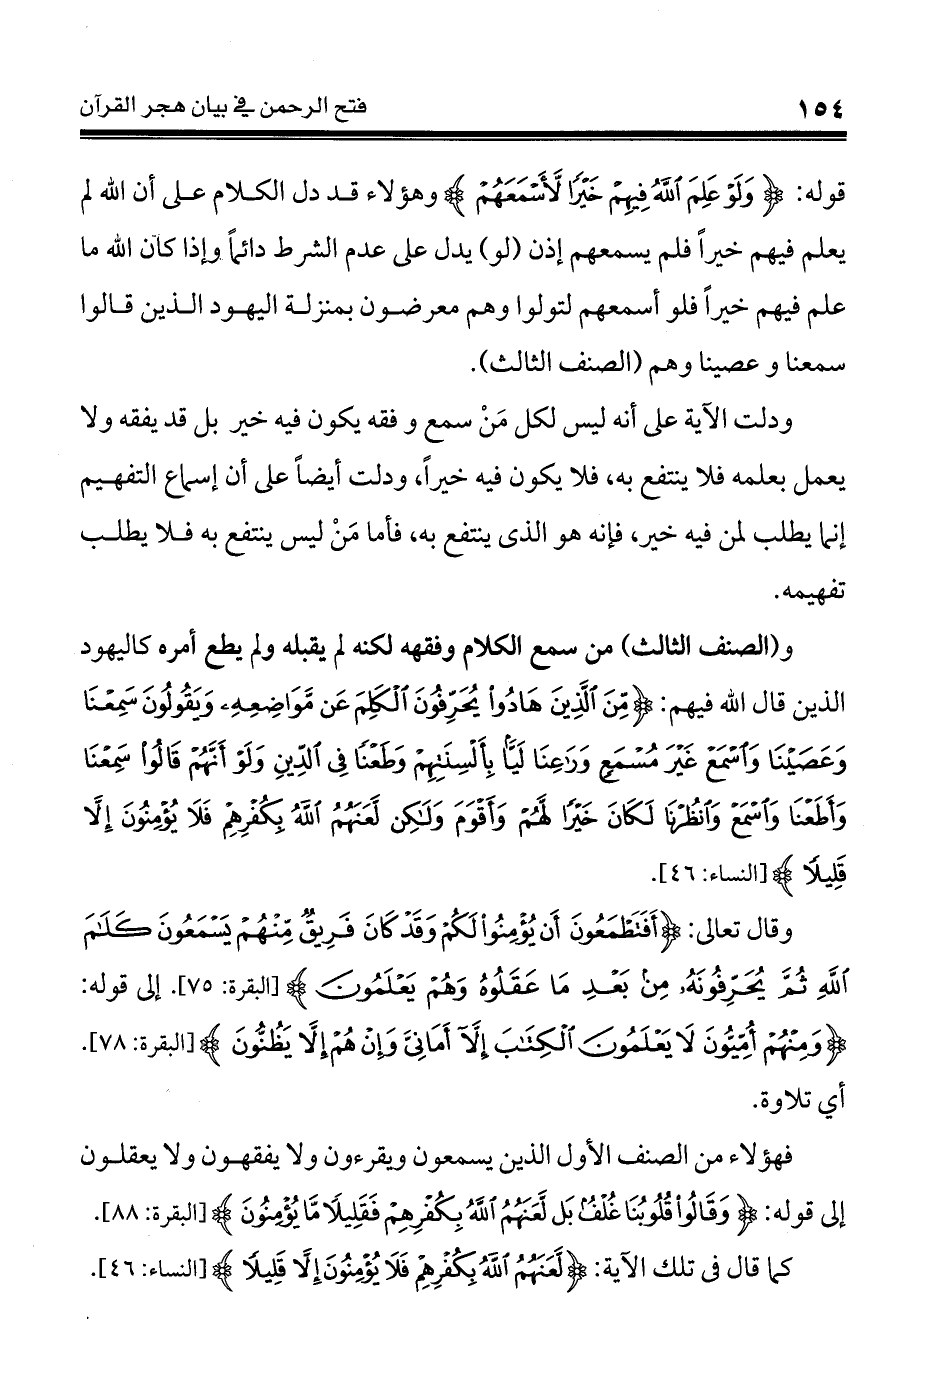 ١٥٤ فتح الرحمن في بيان هجر القرآن
قوله: ﴿ وَلَوْ عَلِمَ ٱللَّهُ فِيهِمْ خَيْرًا لَّأَسْمَعَهُمْ ﴾ وهؤلاء قد دل الكلام على أن الله لم
يعلم فيهم خيراً فلم يسمعهم إذن (لو) يدل على عدم الشرط دائماً وإذا كان الله ما
علم فيهم خيراً فلو أسمعهم لتولوا وهم معرضون بمنزلة اليهود الذين قالوا
سمعنا و عصينا وهم (الصنف الثالث).
ودلت الآية على أنه ليس لكل مَنْ سمع و فقه يكون فيه خير بل قد يفقه ولا
يعمل بعلمه فلا ينتفع به، فلا يكون فيه خيراً، ودلت أيضاً على أن إسماع التفهيم
إنما يطلب لمن فيه خير، فإنه هو الذى ينتفع به، فأما مَنْ ليس ينتفع به فلا يطلب
تفهيمه.
و(الصنف الثالث) من سمع الكلام وفقهه لكنه لم يقبله ولم يطع أمره كاليهود
الذين قال الله فيهم: ﴿ مِّنَ ٱلَّذِينَ هَادُوا۟ يُحَرِّفُونَ ٱلْكَلِمَ عَن مَّوَاضِعِهِۦ وَيَقُولُونَ سَمِعْنَا
وَعَصَيْنَا وَٱسْمَعْ غَيْرَ مُسْمَعٍ وَرَٰعِنَا لَيًّۢا بِأَلْسِنَتِهِمْ وَطَعْنًا فِى ٱلدِّينِ وَلَوْ أَنَّهُمْ قَالُوا۟ سَمِعْنَا
وَأَطَعْنَا وَٱسْمَعْ وَٱنظُرْنَا لَكَانَ خَيْرًا لَّهُمْ وَأَقْوَمَ وَلَٰكِن لَّعَنَهُمُ ٱللَّهُ بِكُفْرِهِمْ فَلَا يُؤْمِنُونَ إِلَّا
قَلِيلًا ﴾ [النساء: ٤٦].
وقال تعالى: ﴿ أَفَتَطْمَعُونَ أَن يُؤْمِنُوا۟ لَكُمْ وَقَدْ كَانَ فَرِيقٌ مِّنْهُمْ يَسْمَعُونَ كَلَٰمَ
ٱللَّهِ ثُمَّ يُحَرِّفُونَهُۥ مِنۢ بَعْدِ مَا عَقَلُوهُ وَهُمْ يَعْلَمُونَ ﴾ [البقرة: ٧٥]. إلى قوله:
﴿ وَمِنْهُمْ أُمِّيُّونَ لَا يَعْلَمُونَ ٱلْكِتَٰبَ إِلَّآ أَمَانِىَّ وَإِنْ هُمْ إِلَّا يَظُنُّونَ ﴾ [البقرة: ٧٨].
أي تلاوة.
فهؤلاء من الصنف الأول الذين يسمعون ويقرءون ولا يفقهون ولا يعقلون
إلى قوله: ﴿ وَقَالُوا۟ قُلُوبُنَا غُلْفٌۢ بَل لَّعَنَهُمُ ٱللَّهُ بِكُفْرِهِمْ فَقَلِيلًا مَّا يُؤْمِنُونَ ﴾ [البقرة: ٨٨].
كما قال فى تلك الآية: ﴿ لَّعَنَهُمُ ٱللَّهُ بِكُفْرِهِمْ فَلَا يُؤْمِنُونَ إِلَّا قَلِيلًا ﴾ [النساء: ٤٦].